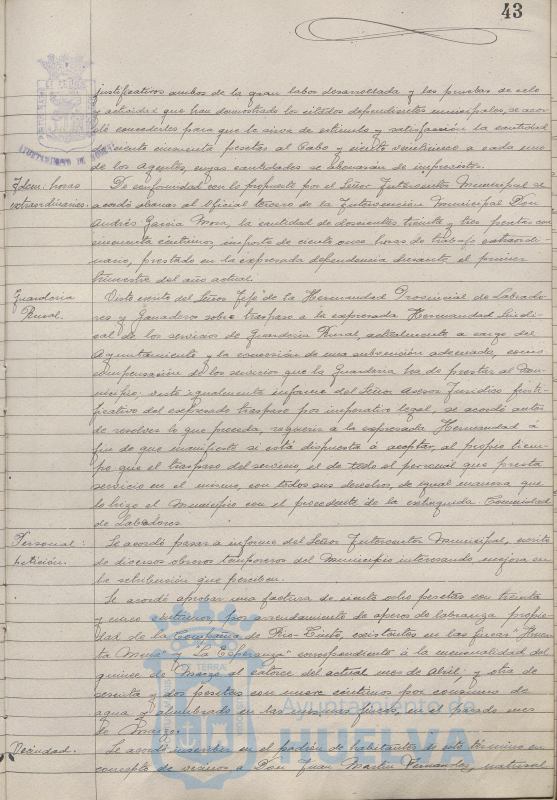 43
justificativos ambos de la gran labor desarrollada y las pruebas de celo
y actividad que han demostrado los citados dependientes municipales, se acor-
dó concederles para que le sirva de estímulo y satisfacción la cantidad
ciento cincuenta pesetas al Cabo y ciento veinticinco a cada uno
de los Agentes, cuyas cantidades se abonarán de imprevistos.
AYUNTAMIENTO DE HUELVA
Idem: horas
extraordinarias.
De conformidad con lo propuesto por el Señor Interventor Municipal se
acordó abonar al Oficial tercero de la Intervención Municipal Don
Andrés Garcia Mora, la cantidad de doscientas treinta y tres pesetas con
cincuenta céntimos, importe de ciento once horas de trabajo extraordi-
nario, prestado en la expresada dependencia durante el primer
trimestre del año actual.
Guardería
Rural.
Visto escrito del Señor Jefe de la Hermandad Provincial de Labrado-
res y Ganaderos sobre traspaso a la expresada Hermandad Sindi-
cal de los servicios de Guardería Rural, actualmente a cargo del
Ayuntamiento y la concesión de una subvención adecuada, como
compensación de los servicios que la Guardería ha de prestar al Mu-
nicipio: visto igualmente informe del Señor Asesor Jurídico justi-
ficativo del expresado traspaso por imperativo legal, se acordó antes
de resolver lo que proceda, requerir a la expresada Hermandad á
fin de que manifieste si está dispuesta á aceptar, al propio tiem-
po que el traspaso del servicio, el de todo el personal que presta
servicio en el mismo, con todos sus derechos, de igual manera que
lo hizo el Municipio con el procedente de la extinguida Comunidad
de Labradores.
Personal:
petición.
Se acordó pasar a informe del Señor Interventor Municipal, escrito
de diversos obreros temporeros del Municipio interesando mejora en
la retribución que perciben.
Se acordó aprobar una factura de ciento ocho pesetas con treinta
y cinco céntimos, por arrendamiento de aperos de labranza propie-
dad de la Compañia de Rio-Tinto, existentes en las fincas "Huer-
ta Mena" y "La Esperanza" correspondiente á la mensualidad del
quince de Marzo al catorce del actual mes de Abril; y otra de
sesenta y dos pesetas con nueve céntimos por consumo de
agua y alumbrado en las mismas fincas, en el pasado mes
de Marzo.
Vecindad.
Se acordó inscribir en el padrón de habitantes de este término en
concepto de vecinos a Don Juan Martin Fernandez, natural
Ayuntamiento de
HUELVA